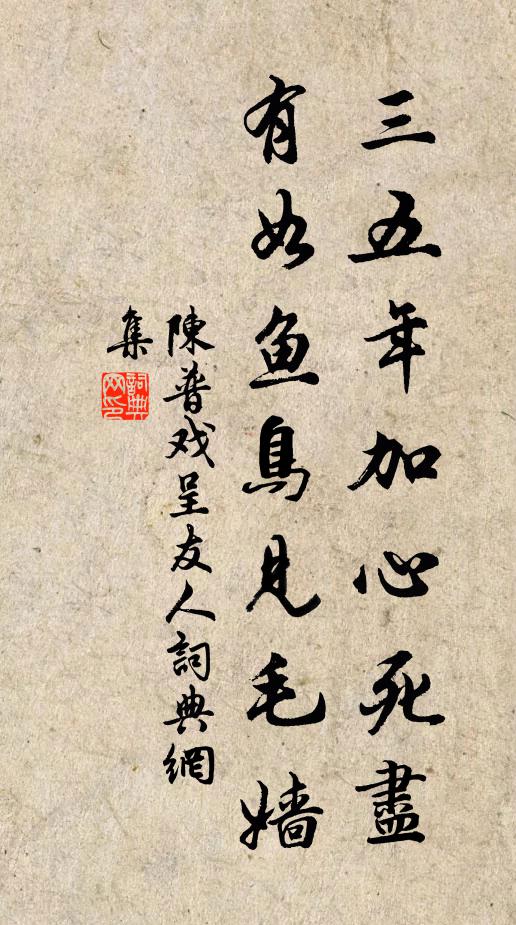 三五年加心死盡
有如鱼鳥見毛嫱
陳普戏呈友人詞典網
集
詞典
网印